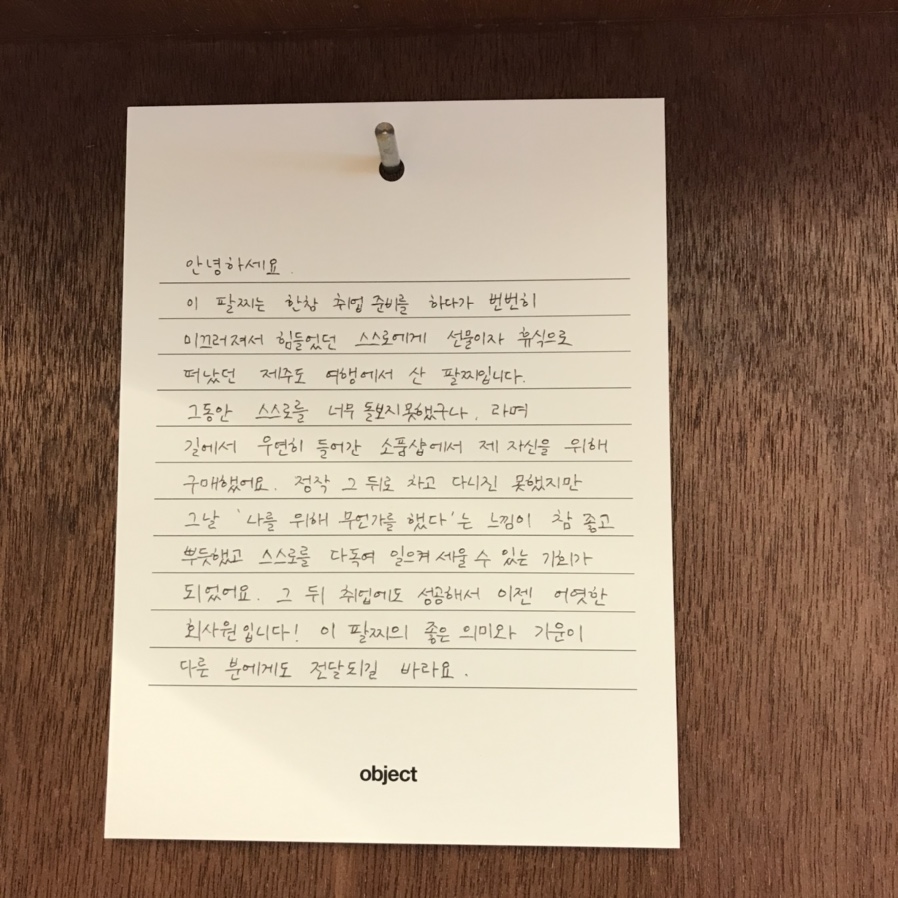 안녕하세요.
이 팔찌는 한참 취업 준비를 하다가 번번히
미끄러져서 힘들었던 스스로에게 선물이자 휴식으로
떠났던 제주도 여행에서 산 팔찌입니다.
그동안 스스로를 너무 돌보지 못했구나, 라며
길에서 우연히 들어간 소품샵에서 제 자신을 위해
구매했어요. 정작 그 뒤로 차고 다니진 못했지만
그날 '나를 위해 무언가를 했다'는 느낌이 참 좋고
뿌듯했고 스스로를 다독여 일으켜 세울 수 있는 기회가
되었어요. 그 뒤 취업에도 성공해서 이젠 어엿한
회사원입니다! 이 팔찌의 좋은 의미와 기운이
다른 분에게도 전달되길 바라요.
object